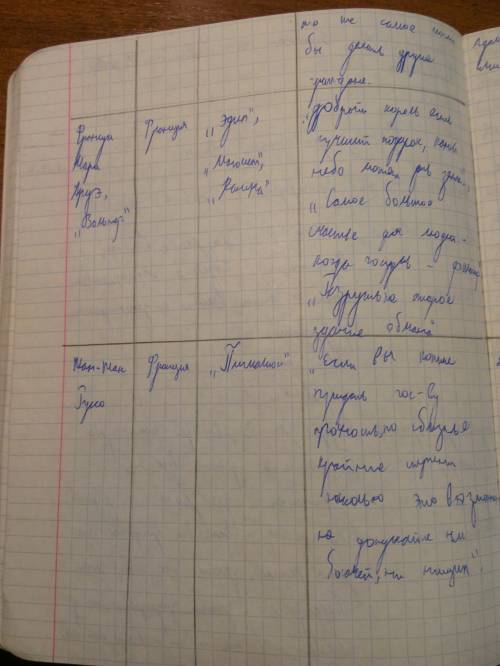 то же самое
бы делать другие
граждане.
Франсуа
Мари
Аруэ,
„Вольтер"
Франция
„Эдип",
„Магомет",
„Добрый король есть
лучший подарок, какой
небо может дать земле".
„Самое большое
счастье для людей -
когда государь - философ"
„Разрушьте старое
здание обмана
Жан-Жак
Руссо
Франция
„Пигмалион"
„Если вы хотите
придать гос-ву
прочность, то сблизьте
крайние
насколько это возможно
не допускайте ни
богачей, ни нищих".